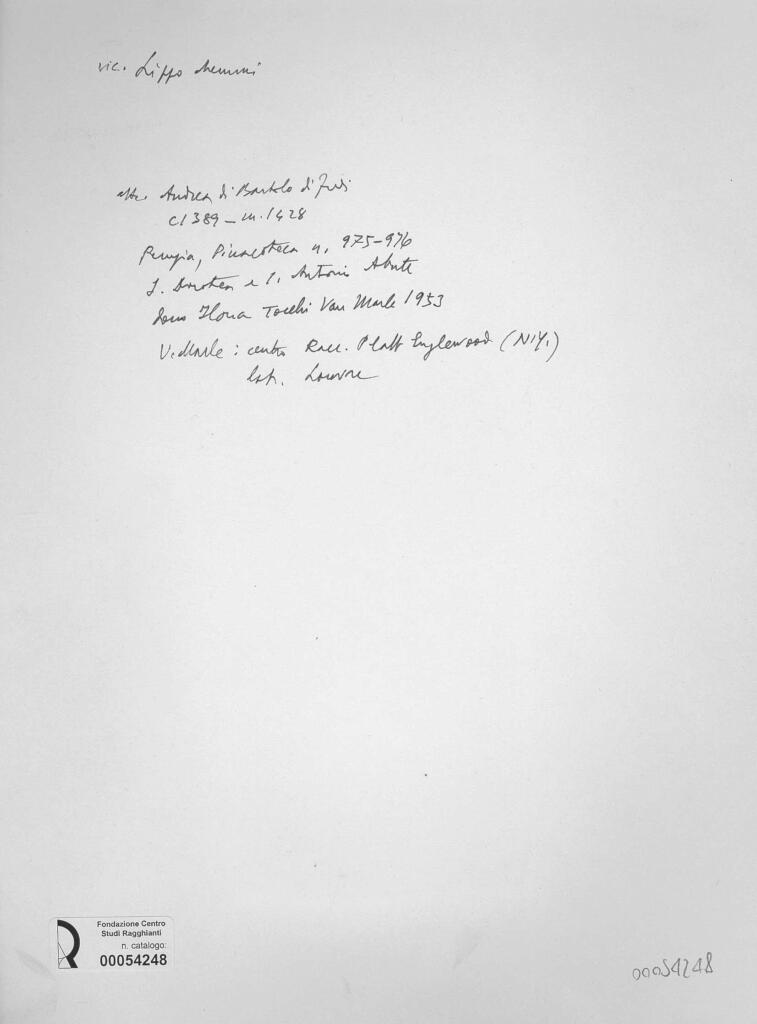 vic. Lippo Memmi
attr. Andrea di Bartolo di Fredi
c1389 – m. 1428
Perugia, Pinacoteca n. 975-976
S. Dorotea e S. Antonio Abate
dono Ilona Tocchi Van Marle 1953
V. Marle: centro Racc. Platt Englewood (N.Y.)
lat. Louvre
Fondazione Centro
Studi Ragghianti
n. catalogo:
00054248
00054248